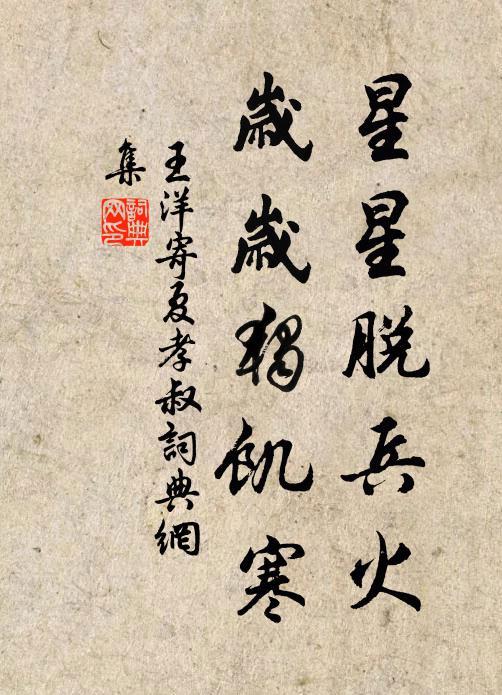 星星脫兵火
歲歲獨飢寒
王洋寄夏孝叔詞典網
集
詞典
网印